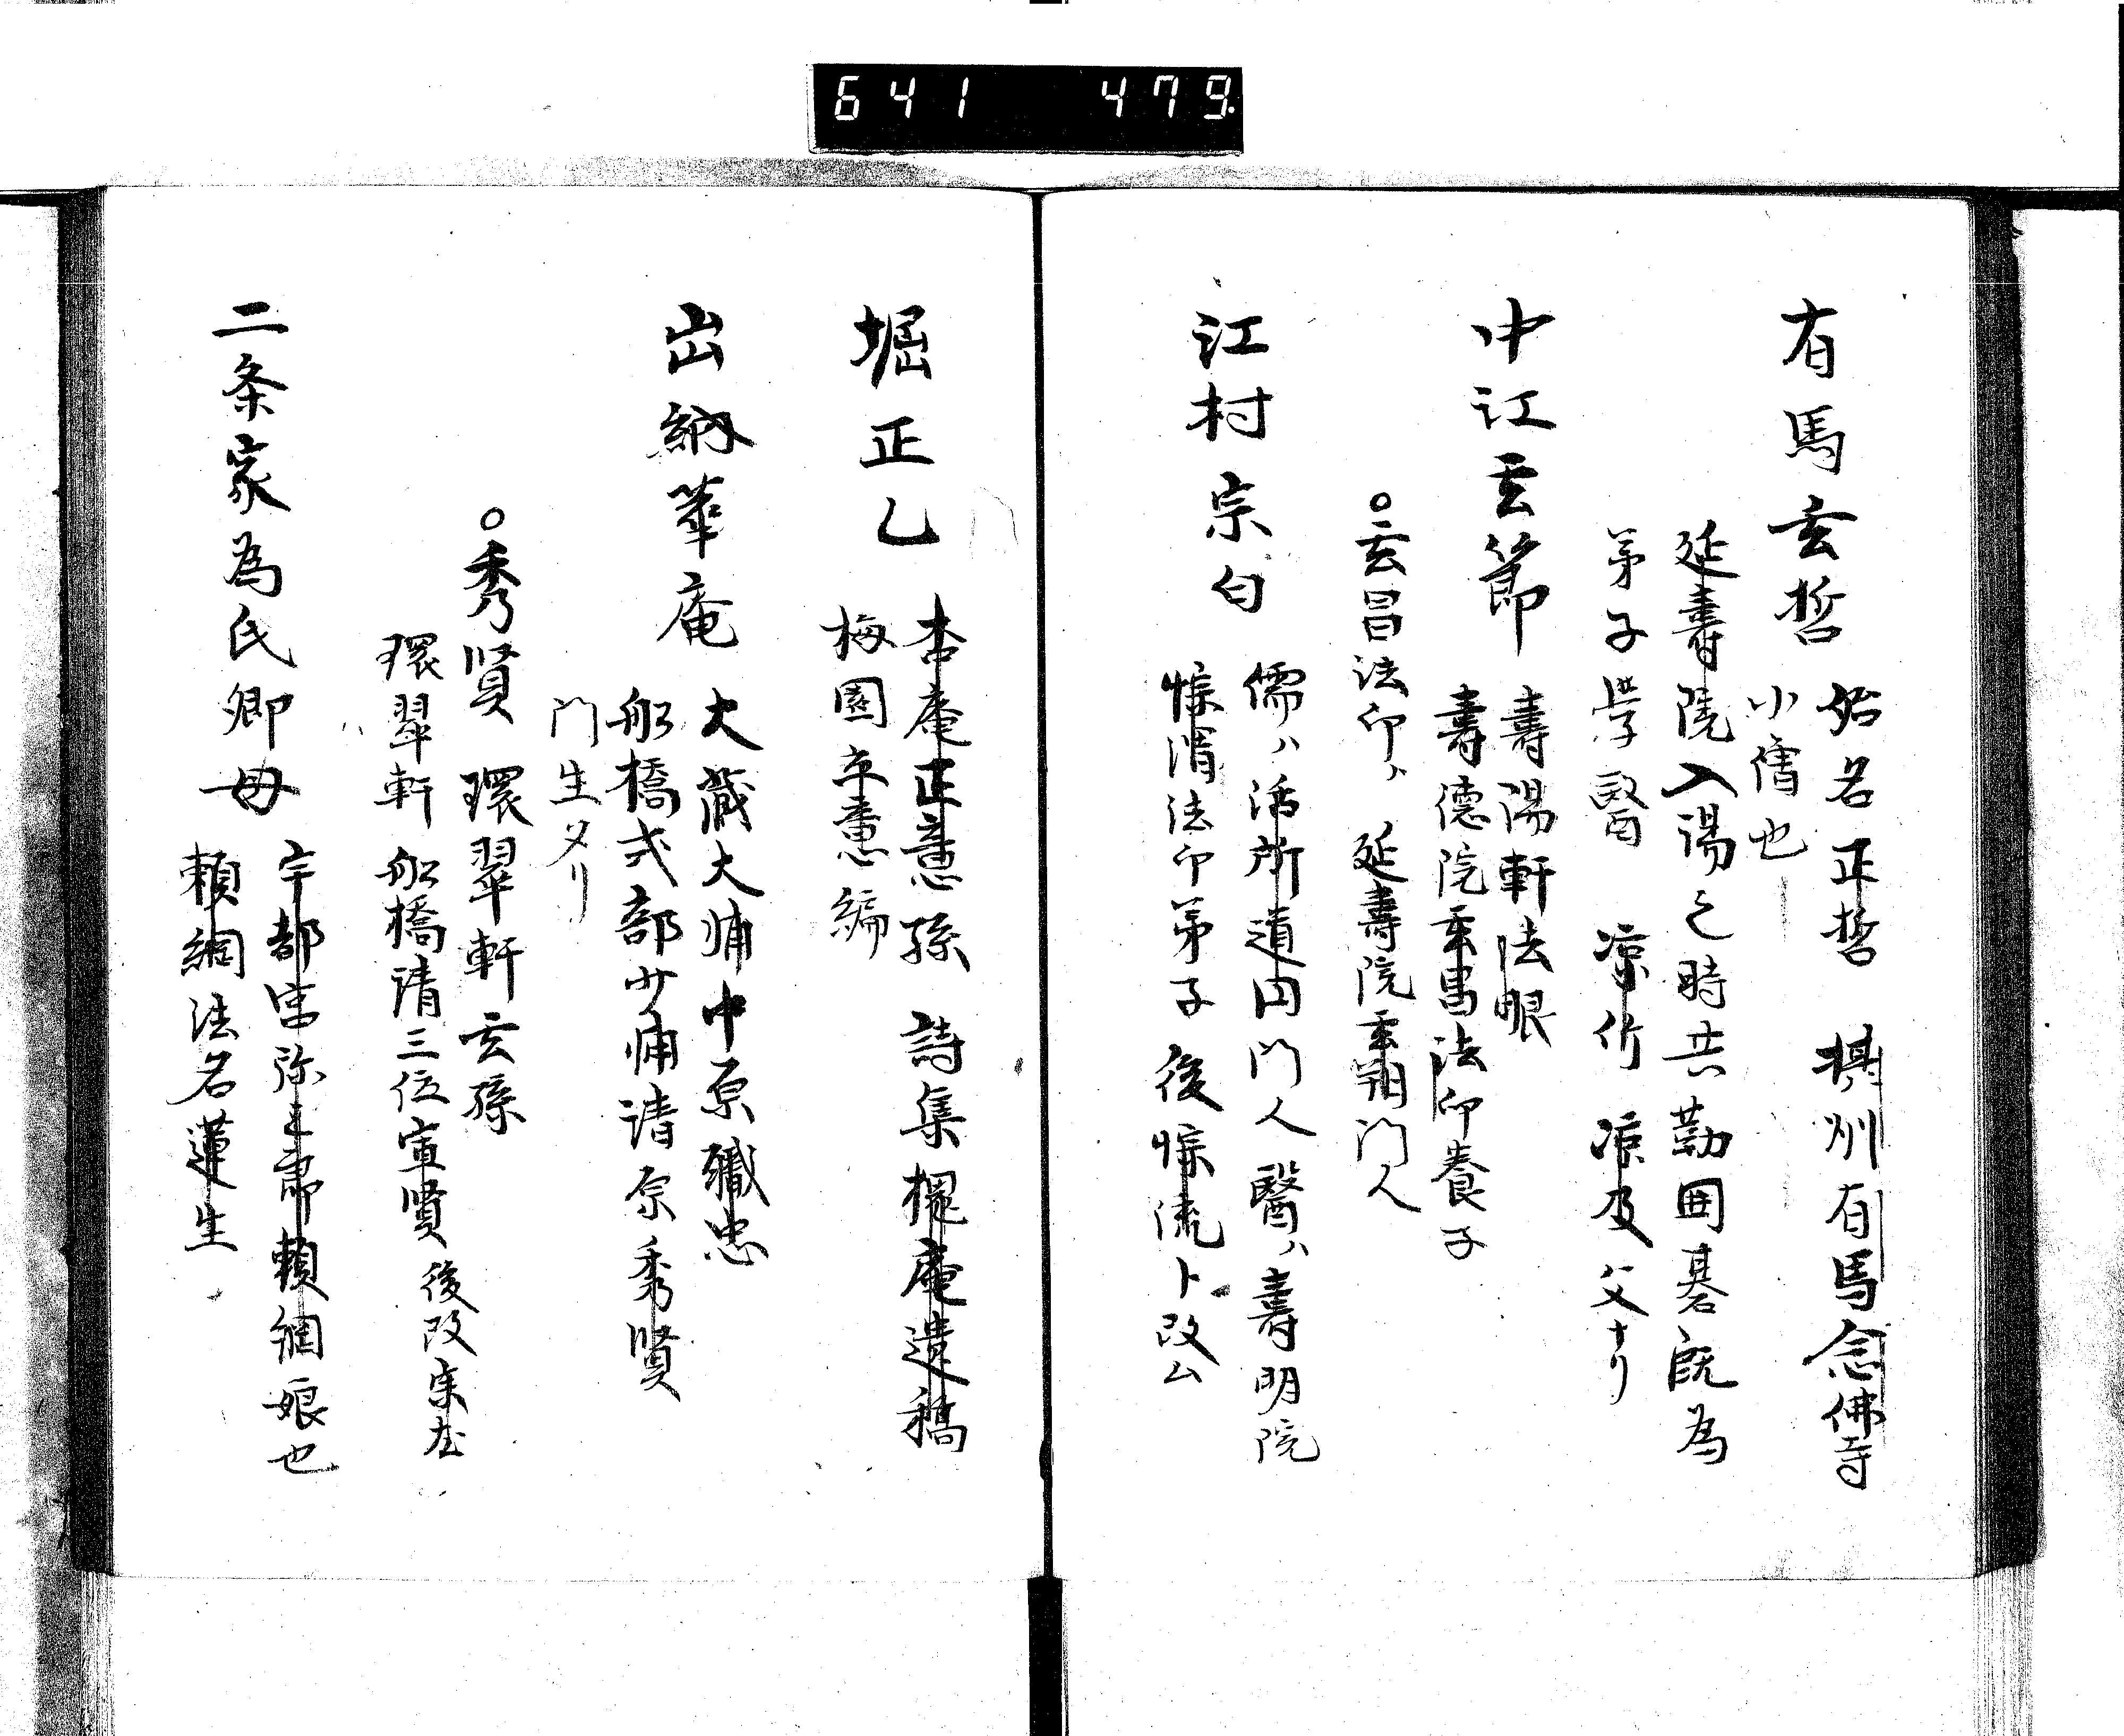 641 479
有馬玄哲 始名正哲 摂州有馬念佛寺
小僧也
延壽院入湯之時共勤囲碁既為
弟子学醫 凉竹 凉及父ナリ
中江玄節 壽陽軒法眼
壽德院玄昌法印養子
○玄昌法印ハ延壽院玄朔門人
江村宗白 儒ハ活所道円門人醫ハ壽明院
惊滑法印弟子後惊流ト改ム
堀正乙 杏庵正意孫 詩集櫂庵遺稿
梅園立薫編
出納華庵 大蔵大輔中原職忠
舩橋式部少輔清原秀賢
門生ナリ
○秀賢 環翠軒玄孫
環翠軒 舩橋清三位宣賢 後改宗尤
二条家為氏卿母 宇都宮弥三郎頼綱娘也
頼綱法名蓮生